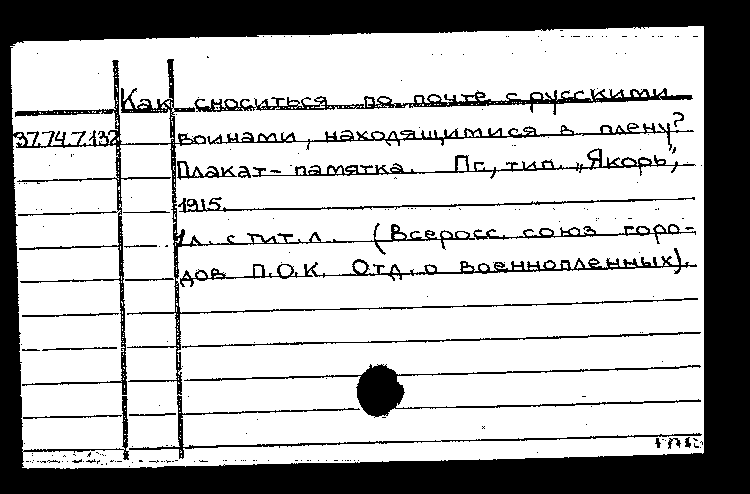 Как сноситься по почте с русскими
37.74.7.132 воинами, находящимися в плену?
Плакат-памятка. Пг., тип. „Якорь",
1915.
1л. с тит. л. (Всеросс. союз горо-
дов П.О.К. Отд. о военнопленных).